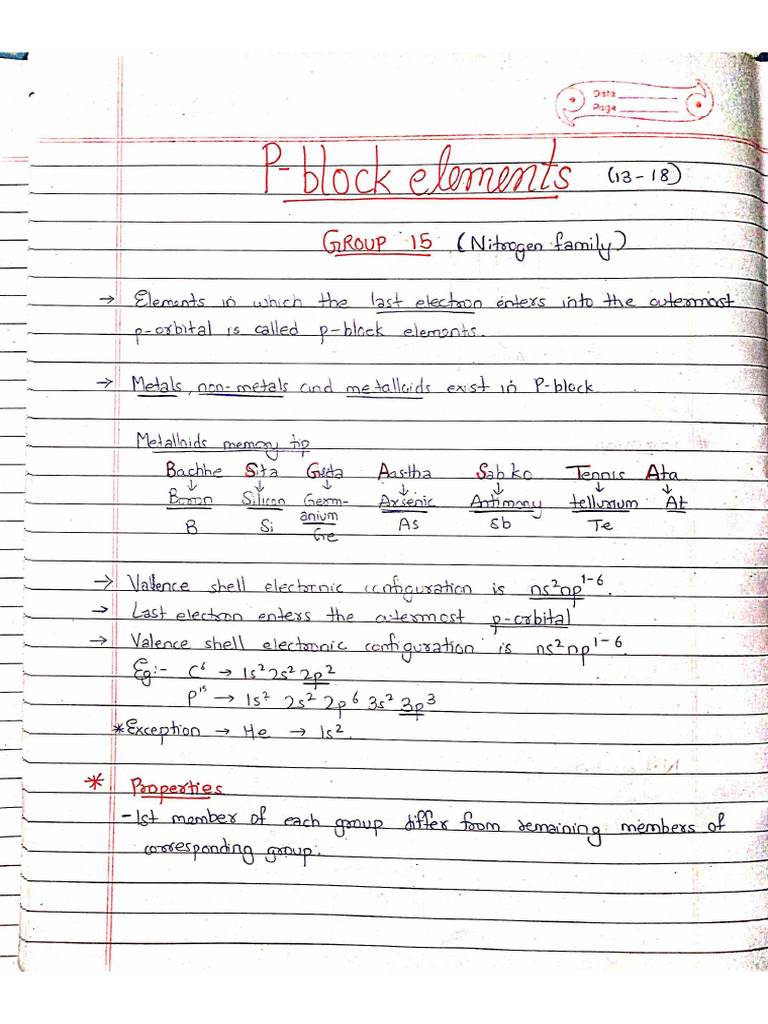 Data
Page
P-block elements (13-18)
GROUP 15 (Nitrogen family)
→ Elements in which the last electron enters into the outermost
p-orbital is called p-block elements.
→ Metals, non-metals and metalloids exist in P-block
Metalloids memory tip
Bachhe Sita Geeta Aastha Sab ko Tennis Ata
↓ ↓ ↓ ↓ ↓ ↓ ↓
Boron Silicon Germ- Arsenic Antimony tellurium At
anium
B Si Ge As Sb Te
→ Valence shell electronic configuration is ns²np¹⁻⁶.
→ Last electron enters the outermost p-orbital
→ Valence shell electronic configuration is ns²np¹⁻⁶.
Eg:- C⁶ → 1s² 2s² 2p²
P¹⁵ → 1s² 2s² 2p⁶ 3s² 3p³
*Exception → He → 1s².
* Properties
- 1st member of each group differ from remaining members of
corresponding group.